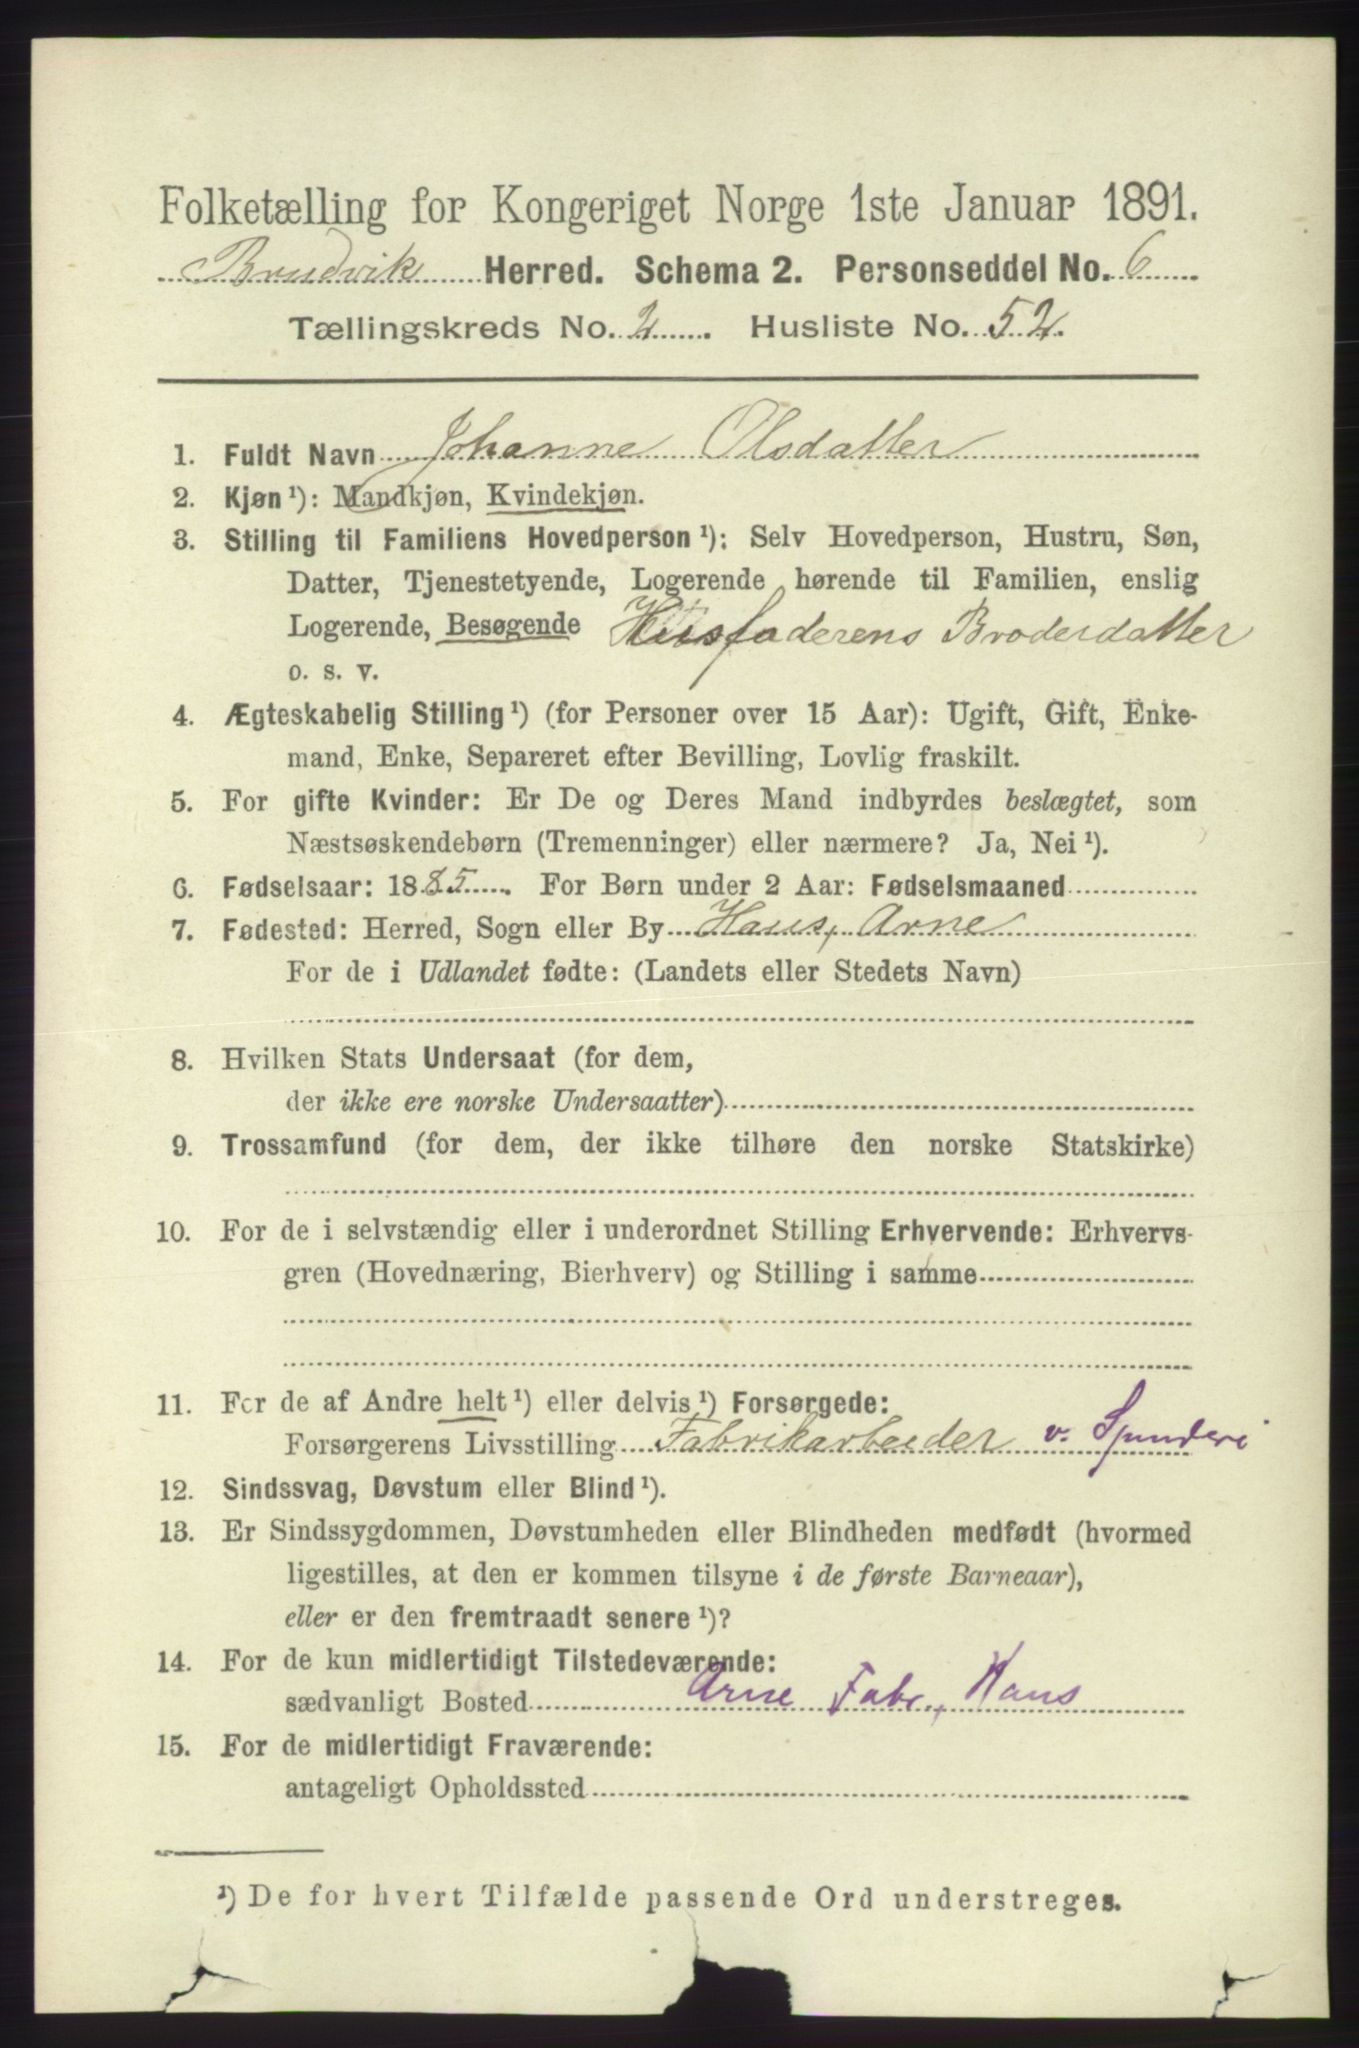 Folketælling for Kongeriget Norge 1ste Januar 1891.
Brudvik Herred. Schema 2. Personseddel No. 6
Tællingskreds No. 2. Husliste No. 52.
1. Fuldt Navn Johanne Olsdatter
2. Kjøn ¹): Mandkjøn, Kvindekjøn.
3. Stilling til Familiens Hovedperson ¹): Selv Hovedperson, Hustru, Søn,
Datter, Tjenestetyende, Logerende hørende til Familien, enslig
Logerende, Besøgende Husfaderens Broderdatter
o. s. v.
4. Ægteskabelig Stilling ¹) (for Personer over 15 Aar): Ugift, Gift, Enke-
mand, Enke, Separeret efter Bevilling, Lovlig fraskilt.
5. For gifte Kvinder: Er De og Deres Mand indbyrdes beslægtet, som
Næstsøskendebørn (Tremenninger) eller nærmere? Ja, Nei ¹).
6. Fødselsaar: 1885. For Børn under 2 Aar: Fødselsmaaned
7. Fødested: Herred, Sogn eller By Haus, Arne
For de i Udlandet fødte: (Landets eller Stedets Navn)
8. Hvilken Stats Undersaat (for dem,
der ikke ere norske Undersaatter)
9. Trossamfund (for dem, der ikke tilhøre den norske Statskirke)
10. For de i selvstændig eller i underordnet Stilling Erhvervende: Erhvervs-
gren (Hovednæring, Bierhverv) og Stilling i samme
11. For de af Andre helt ¹) eller delvis ¹) Forsørgede:
Forsørgerens Livsstilling Fabrikarbeider v. Spinderi
12. Sindssvag, Døvstum eller Blind ¹).
13. Er Sindssygdommen, Døvstumheden eller Blindheden medfødt (hvormed
ligestilles, at den er kommen tilsyne i de første Barneaar),
eller er den fremtraadt senere ¹)?
14. For de kun midlertidigt Tilstedeværende:
sædvanligt Bosted Arne Fabr., Haus
15. For de midlertidigt Fraværende:
antageligt Opholdssted
¹) De for hvert Tilfælde passende Ord understreges.